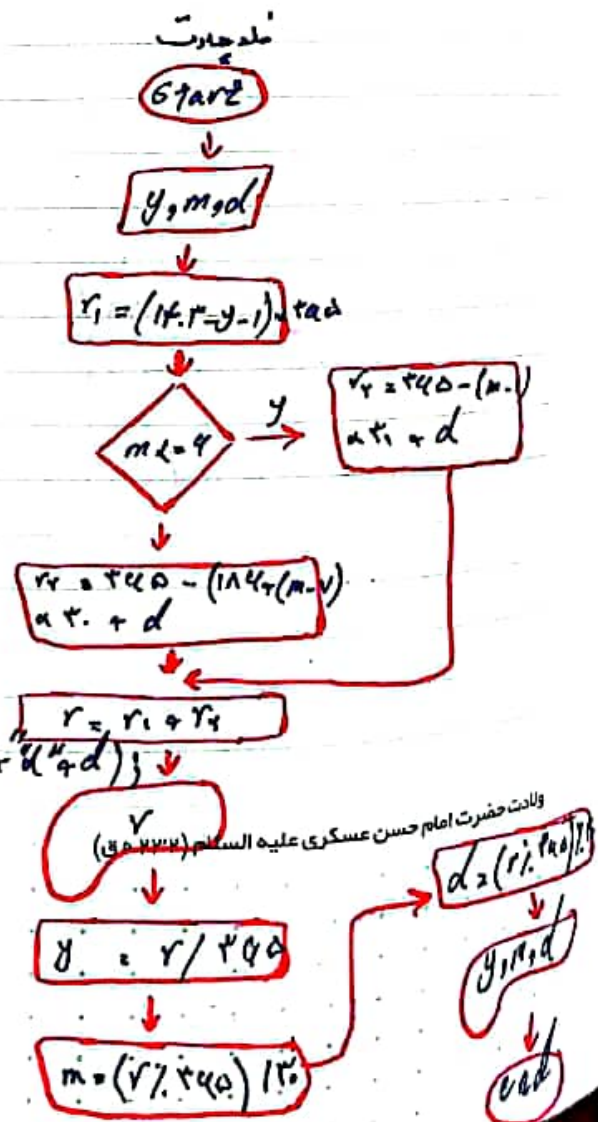 Start
y, m, d
r₁ = (۱۴۰۳-y-۱) × ۳۶۵
m <= ۶
y
r₂ = ۳۶۵ - (m-۱)
× ۳۱ + d
r₂ = ۳۶۵ - (۱۸۶+(m-۷)
× ۳۰ + d
r = r₁ + r₂
"d" + d);
r
ولادت حضرت امام حسن عسکری علیه السلام
y = r / ۳۶۵
m = (r % ۳۶۵) / ۳۰
d = (r % ۳۶۵) %
y, m, d
end